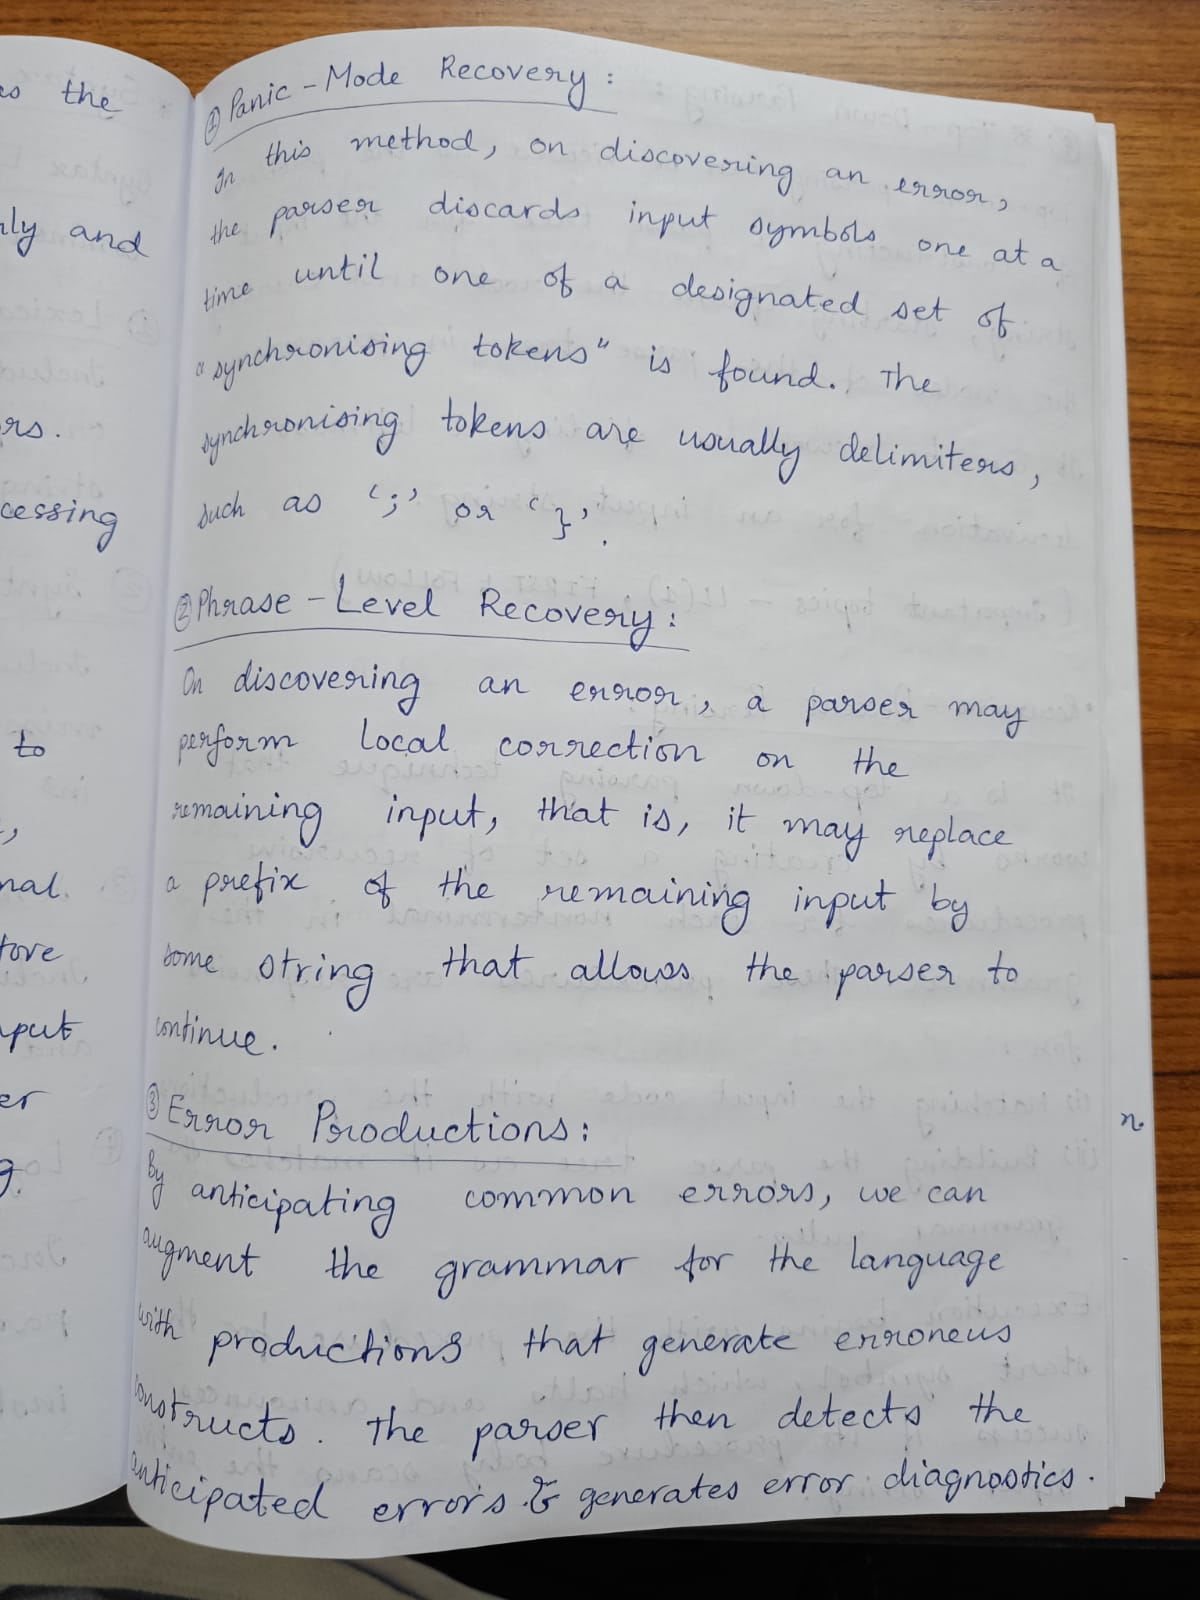 es the
nly and
ors.
cessing
to
nal.
tore
nput
er
g.
① Panic - Mode Recovery :
In this method, on discovering an error,
the parser discards input symbols one at a
time until one of a designated set of
"synchronising tokens" is found. The
synchronising tokens are usually delimiters,
such as ';' or '}'.
② Phrase - Level Recovery :
On discovering an error, a parser may
perform local correction on the
remaining input, that is, it may replace
a prefix of the remaining input by
some string that allows the parser to
continue.
③ Error Productions :
By anticipating common errors, we can
augment the grammar for the language
with productions that generate erroneus
constructs. The parser then detects the
anticipated errors & generates error diagnostics.
n.